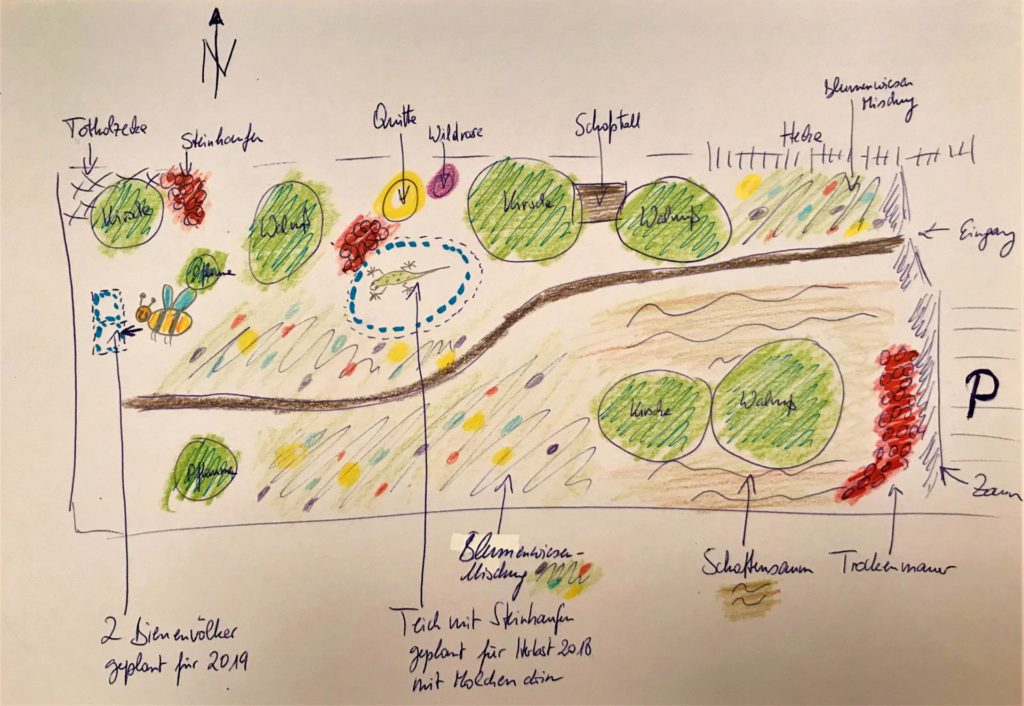 N
Totholzecke
Steinhaufen
Quitte
Wildrose
Schafstall
Hecke
Blumenwiesen
Mischung
Kirsche
Walnuß
Kirsche
Walnuß
Eingang
Pflaume
Kirsche
Walnuß
P
Pflaume
Zaun
Blumenwiesen-
Mischung
Schattensaum
Trockenmauer
2 Bienenvölker
geplant für 2019
Teich mit Steinhaufen
geplant für Herbst 2018
mit Molchen drin